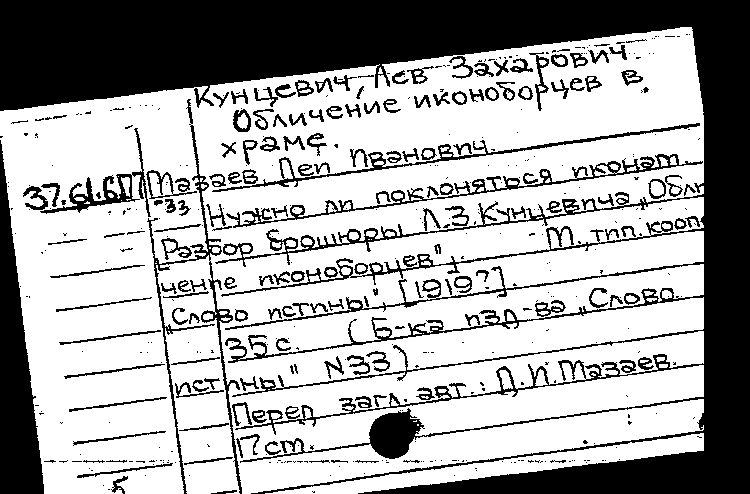 Кунцевич, Лев Захарович.
Обличение иконоборцев в
храме.
37.61.6.117 Мазаев, Деи Иванович.
-33 Нужно ли поклоняться иконам.
[Разбор брошюры Л.З.Кунцевича „Обли
чение иконоборцев"]. - М., тип. кооп
„Слово истины", [1919?].
35 с. (Б-ка изд-ва „Слово
истины" N33).
Перед загл. авт.: Д.И.Мазаев.
17 ст.
5